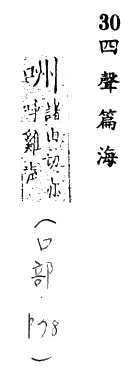 30 四聲篇海
諸由切亦
呼雞聲
(口部・P78)